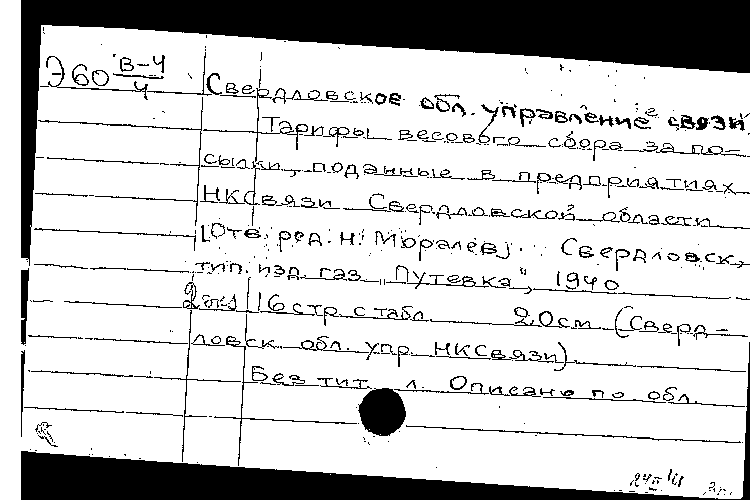 Э60 В-4/4
Свердловское обл. управление связи
Тарифы весового сбора за по-
сылки, поданные в предприятиях
НКСвязи Свердловской области
[Отв. ред. Н. Моралев]. Свердловск,
тип. изд. газ. „Путевка", 1940
2 экз 16 стр. с табл. 20 см (Сверд-
ловск. обл. упр. НКСвязи).
Без тит. л. Описано по обл.